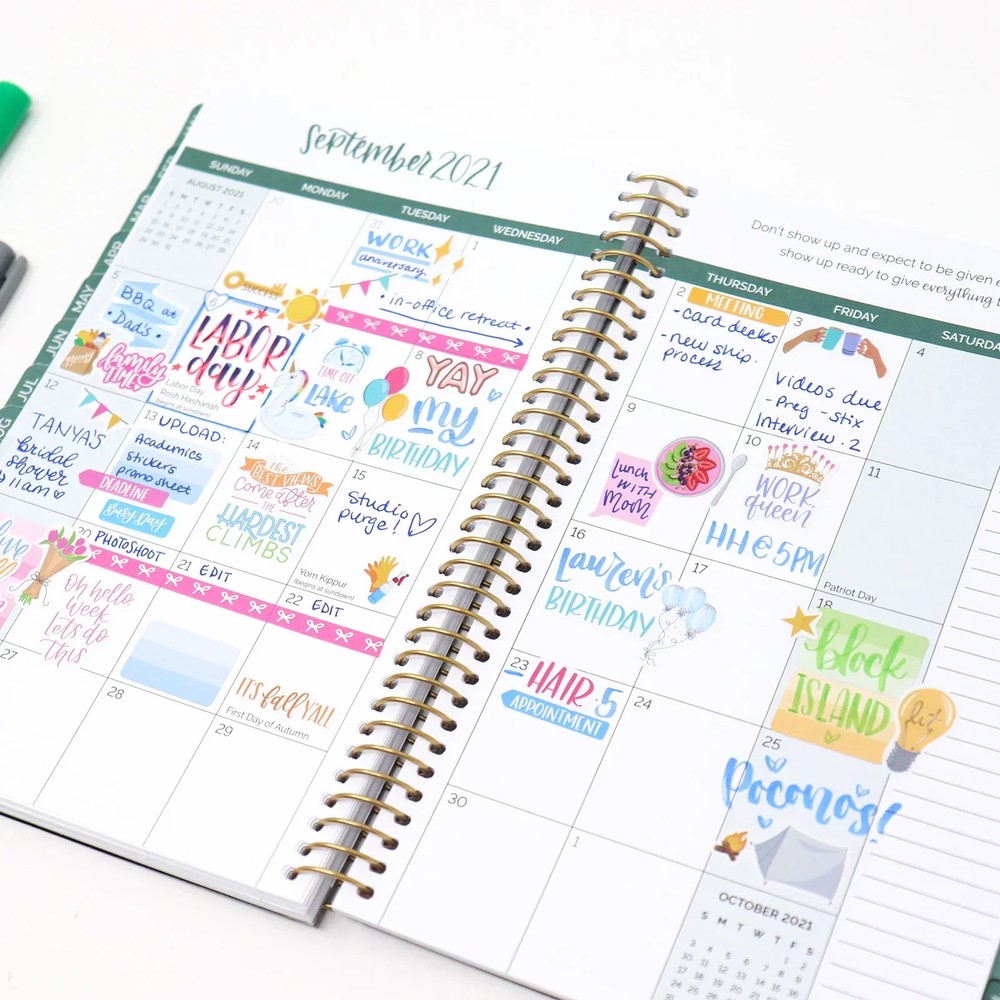 September 2021
SUNDAY
MONDAY
TUESDAY
WEDNESDAY
THURSDAY
FRIDAY
Don't show up and expect to be given
show up ready to give everything
AUGUST 2021
S M T W T F S
30
31
WORK
anniversary
1
• in-office retreat •
2
MEETING
- card decks
- new ship.
process
3
videos due
- Preg - stix
Interview · 2
4
5
BBQ at
• Dad's •
family
TIME
SUCCESS
6
LABOR
day
Labor Day
Rosh Hashanah
(begins at sundown)
7
TIME OFF
LAKE
8
YAY
my
BIRTHDAY
9
Lunch
WITH
Mom
10
WORK
queen
HH @ 5PM
11
Patriot Day
12
TANYA'S
bridal
shower
11am
13
UPLOAD:
Academics
stickers
promo sheet
DEADLINE
Busy Day
14
the
BEST VIEWS
Come after
the
HARDEST
CLIMBS
15
Studio
purge!
Yom Kippur
(begins at sundown)
16
Lauren's
BIRTHDAY
17
18
block
ISLAND
lit
20
PHOTOSHOOT
oh hello
week
lets do
this
21
EDIT
22
EDIT
IT'S fall Y'ALL
First Day of Autumn
23
HAIR
5
APPOINTMENT
24
25
Poconos!
27
28
29
30
1
OCTOBER 2021
S M T W T F S
1 2
3 4 5 6 7 8 9
10 11 12 13 14 15 16
APR
MAY
JUN
JUL